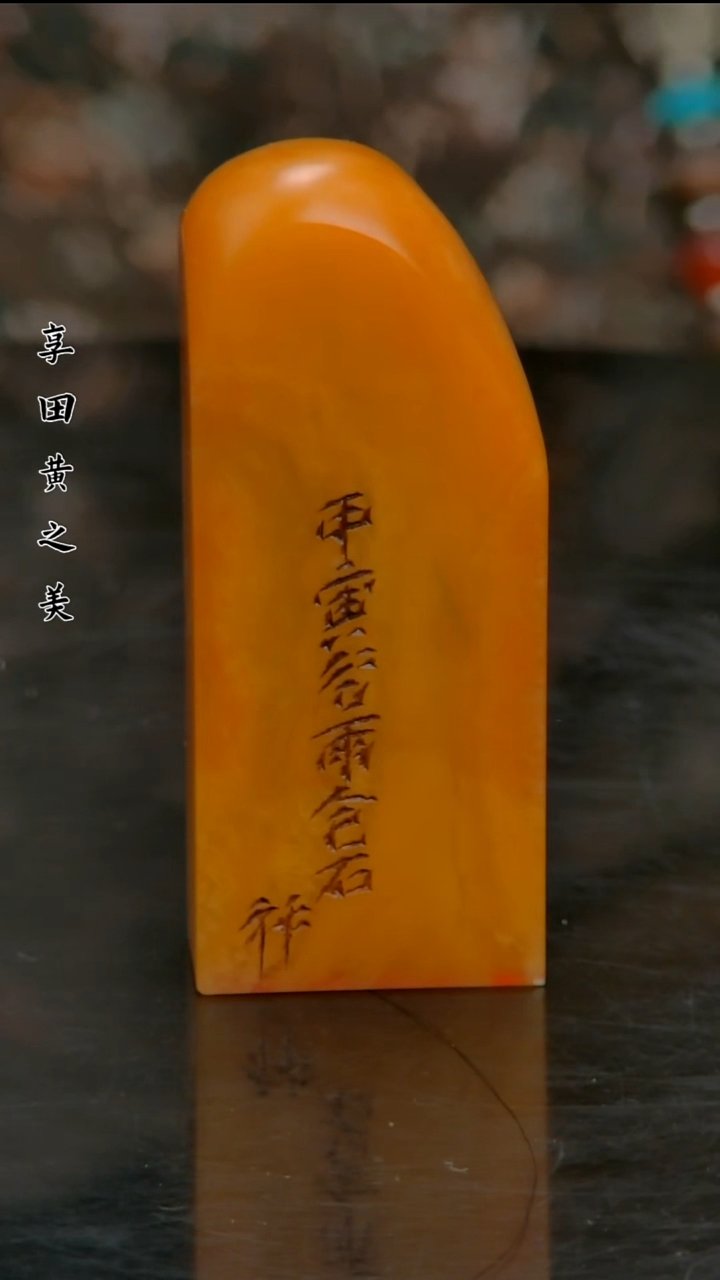 享田黄之美
甲寅谷雨仓石
作